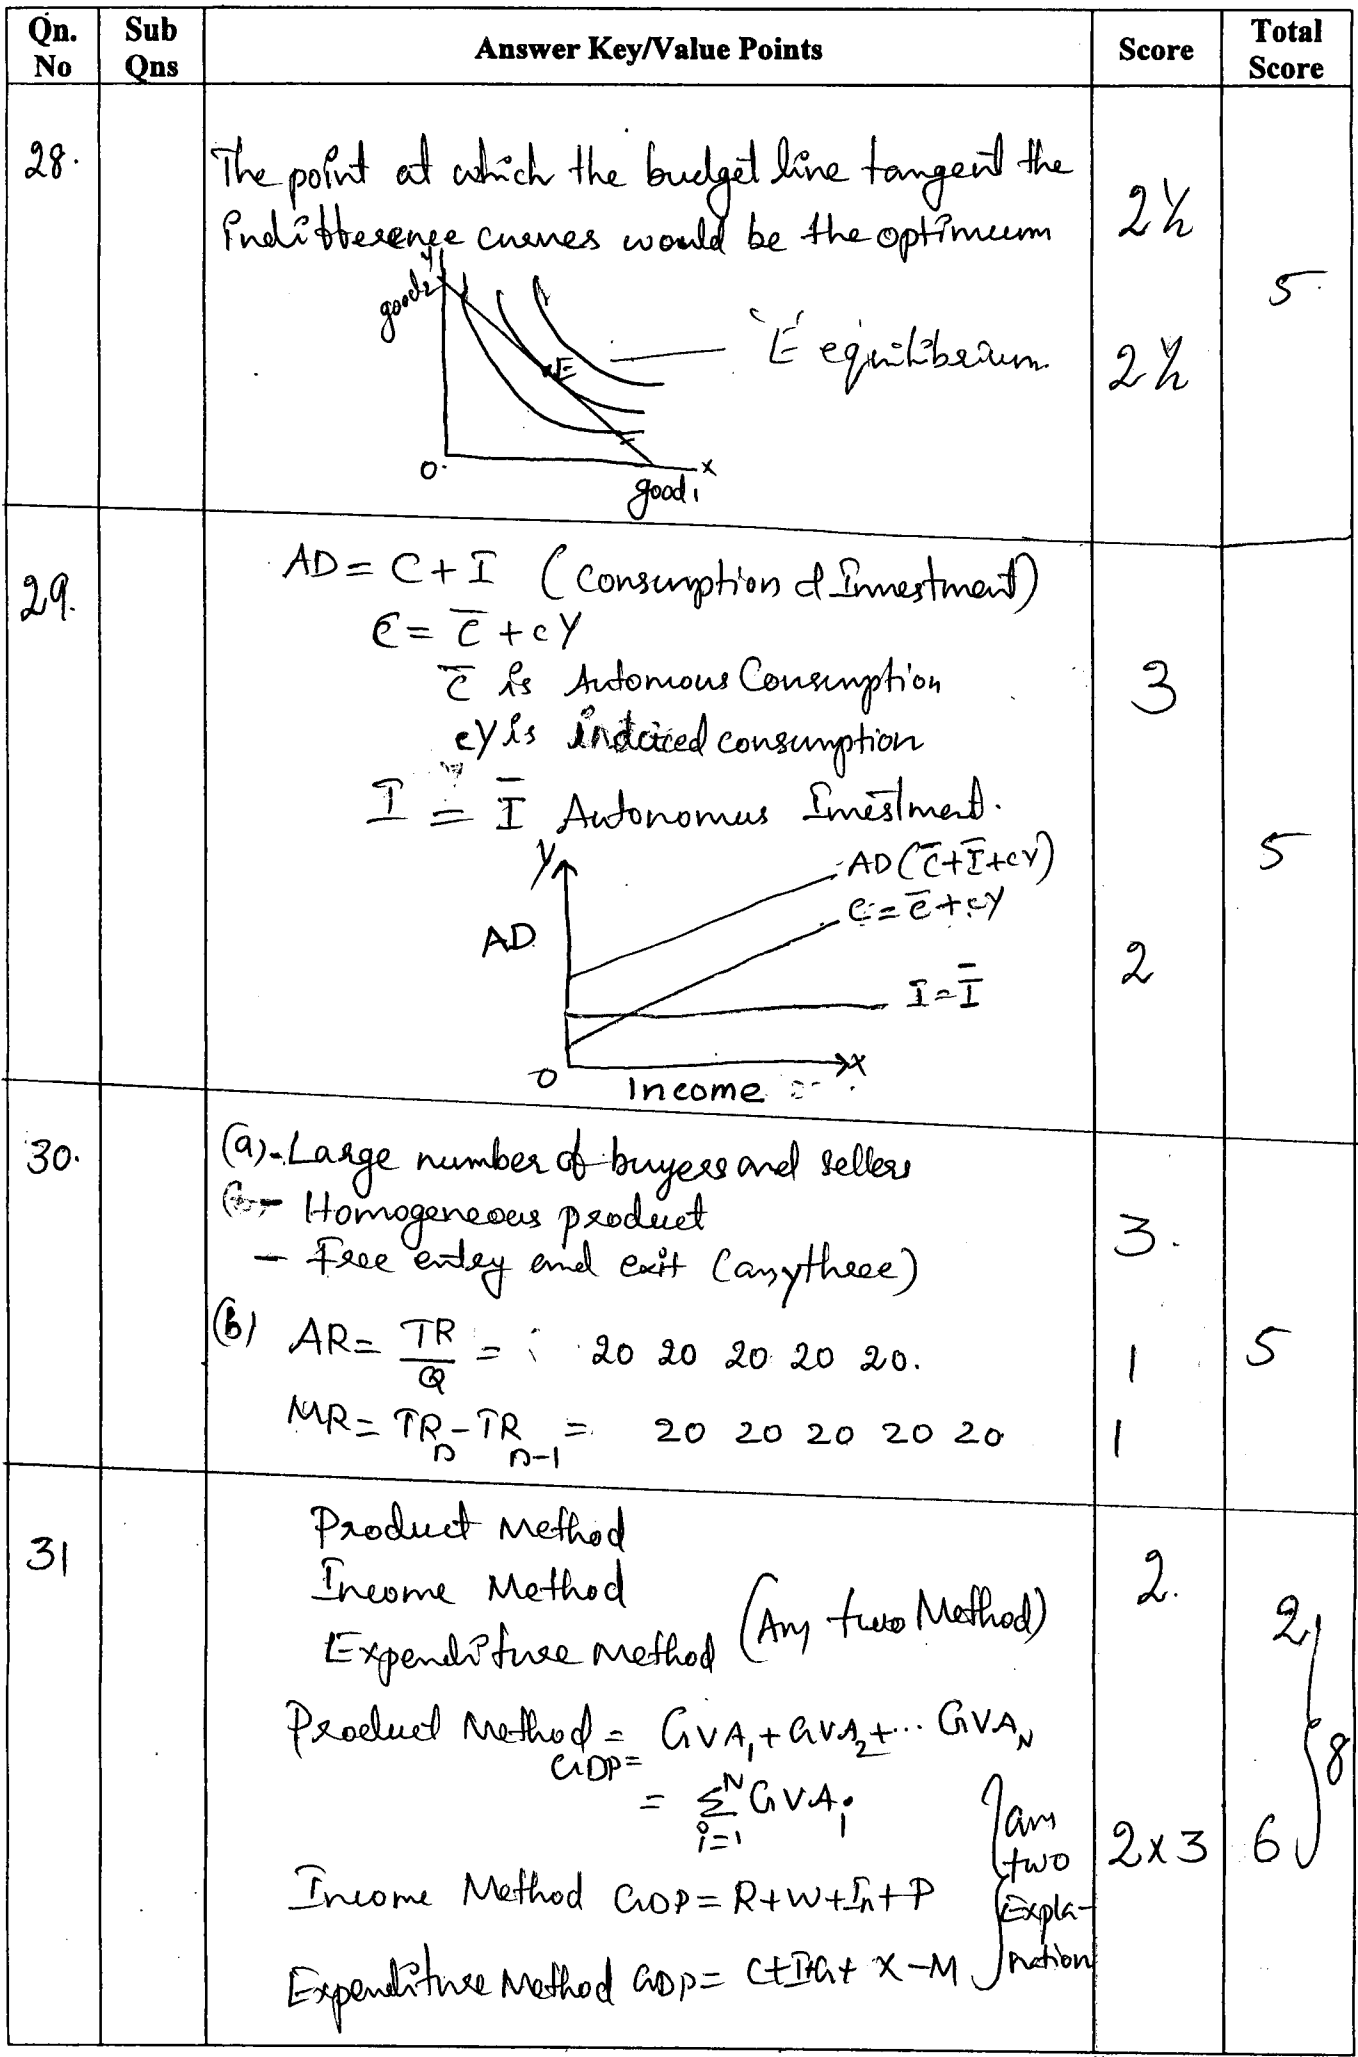 Qn. No
Sub Qns
Answer Key/Value Points
Score
Total Score
28.
The point at which the budget line tangent the
indifference curves would be the optimum
2½
5.
y
good2
E
'E' equilibrium.
2½
0.
x
good1
29.
AD = C + I (Consumption & Investment)
C = C̅ + cY
C̅ is Automous Consumption
cY is induced consumption
3
I = I̅ Autonomus Investment.
Y
AD (C̅+I̅+cY)
5
C = C̅ + cY
AD
I = I̅
2
O
X
Income
30.
(a) - Large number of buyers and sellers
- Homogeneous product
3.
- Free entry and exit (any three)
(b) AR = TR/Q = 20 20 20 20 20.
1
5
MR = TRn - TRn-1 = 20 20 20 20 20
1
31
Product Method
Income Method
2.
Expenditure Method (Any two Method)
2
Product Method = GVA1 + GVA2 + ... GVAN
GDP =
8
= Σ N i=1 GVAi
any two Expla-nation
2 x 3
6
Income Method GDP = R + W + In + P
Expenditure Method GDP = C+I+G+ X - M